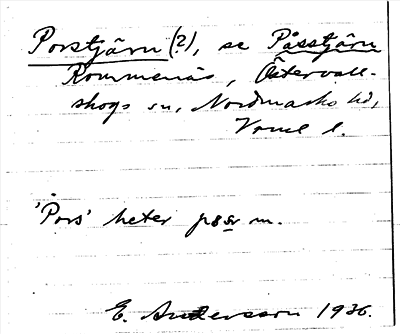 Porstjärn (?), se Påsstjärn
Rommenäs, Östervall-
skogs sn, Nordmarks hd,
Värml l.
'Pors' heter påsr m.
E. Andersson 1936.